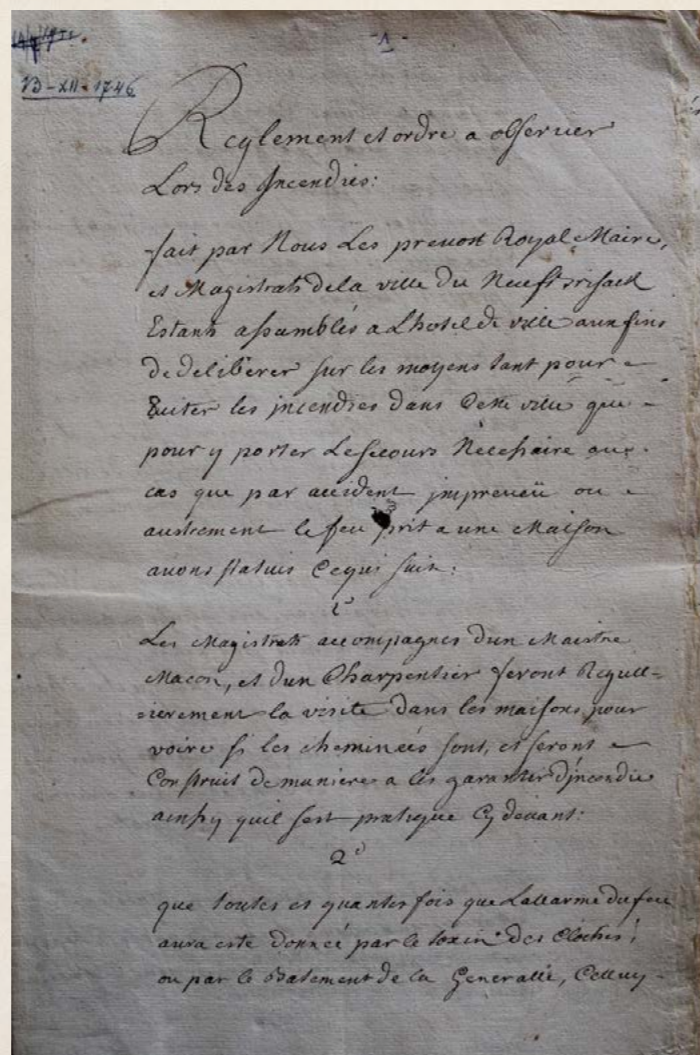 -1-
13-XII-1746
Reglement et ordre a observer
Lors des Incendies:
fait par Nous Les prevost Royal Maire,
et Magistrats de la ville du Neufbrisack
Estants assamblés a Lhotel de ville aux fins
de deliberer sur les moyens tant pour
Eviter les incendies dans Cette ville que
pour y porter Le secours Necessaire au
cas que par accident impreveü ou
austrement le feu prit a une Maison
avons statués Ce qui suit:
1°
Les Magistrats accompagnes dun Maistre
Macon, et dun Charpentier feront Regull=
=ierement la visite dans les maisons, pour
voire si les cheminées sont, et seront
Construit de maniere a les garantir d'jncendie
ainsy quil sest pratiqué Cy devant:
2°
que toutes et quantes fois que Lallarme du feu
aura esté donneé par le toxin des Cloches,
ou par le Batement de la Generalle, Celluy-